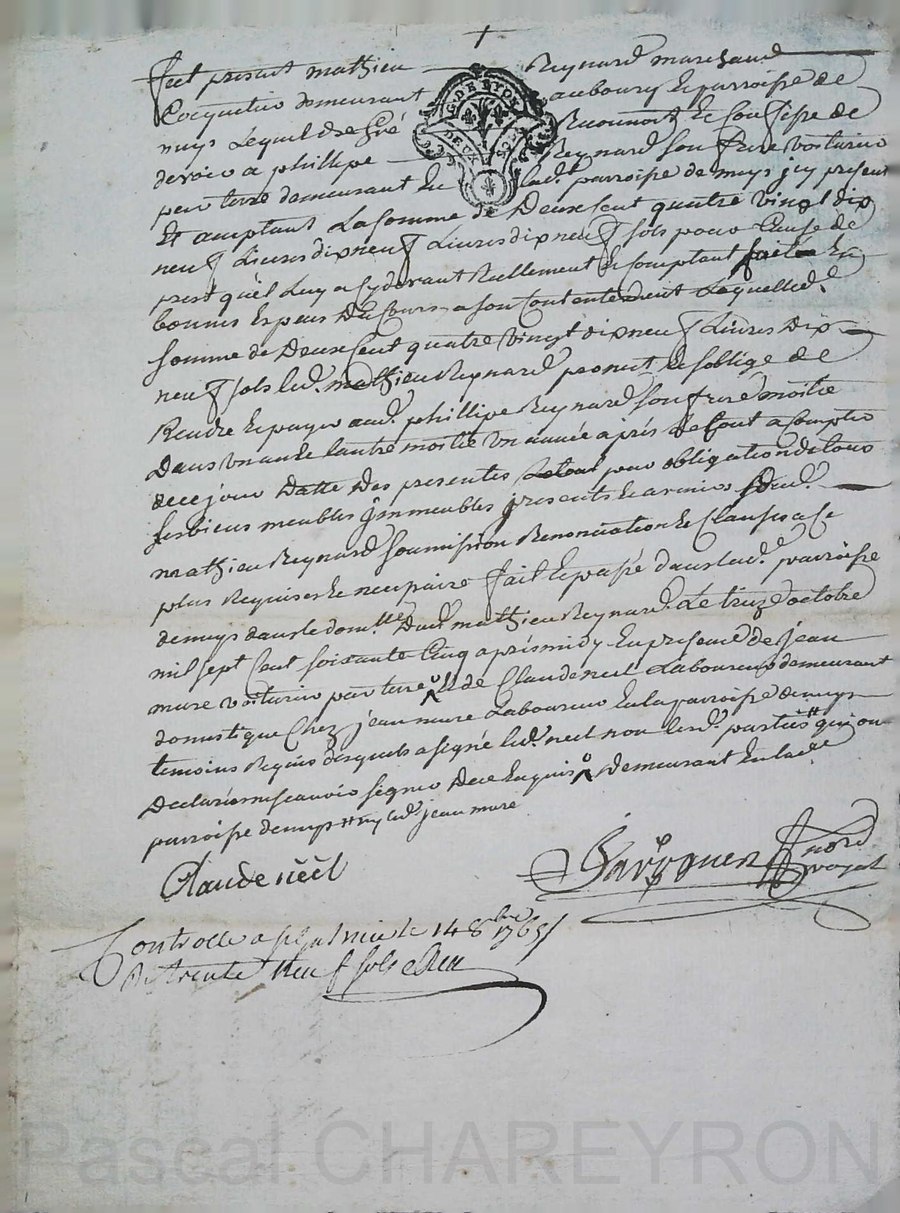 fut present mathieu Reynard marchand
Cocquetier demeurant au bourg & parroisse de
muys Lequel de gré Reconnoit & Confesse de
devoir a phillipe Reynard son frere voiturier
G. DE LYON
DEUX SOLS
par terre demeurant en lad.e parroisse de muys icy present
Et acceptant La somme de Deux Cent quatre vingt dix
neuf Livres dix neuf sols pour Cause de
prest qu'el Luy a cy devant Reellement & comptant fait En
bonnes Especes du Cours a son Contentement Laquelled.e
somme de Deux Cent quatre vingt dix neuf Livres Dix
neuf sols led. mathieu Reynard promet & s'oblige de
Rendre & payer aud. phillipe Reynard son frere moitie
Dans un an & l'autre moitie un année après Le tout a Compter
de ce jour Datte Des presentes Le tout pour obligation de tous
ses biens meubles & immeubles presents & avenir Dud.
mathieu Reynard soumission Renonciation & Clauses a Ce
plus Requises & necessaire fait & passé dans lad.e parroisse
de muys dans le dom.lle Dud. mathieu Reynard Le treize octobre
mil sept Cent soixante Cinq après midy En presence de jean
mure voiturier par terre & de Claude neel Laboureur demeurant
domestique Chez jean mure Laboureur En la parroisse de muys
temoins Requis desquels a signé led. neel non lesd. parties # qui ont
Declaré ne sçavoir signer De ce Enquis Demeurant En lad.e
parroisse de muys # ny led. jean mure
Claude nëël
Controllé a le 14 8bre 1765
R trente neuf sols
Pascal CHAREYRON